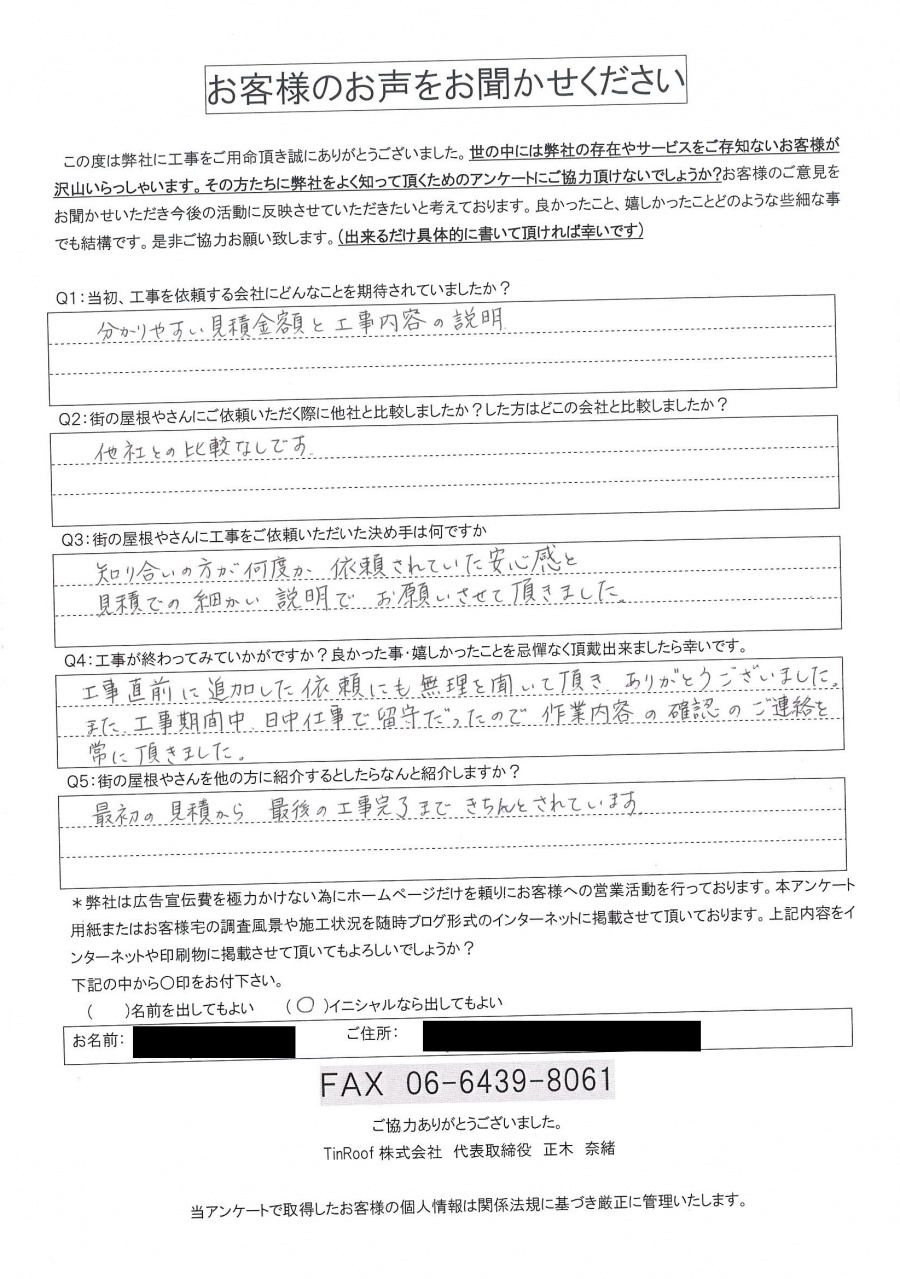 お客様のお声をお聞かせください
この度は弊社に工事をご用命頂き誠にありがとうございました。世の中には弊社の存在やサービスをご存知ないお客様が
沢山いらっしゃいます。その方たちに弊社をよく知って頂くためのアンケートにご協力頂けないでしょうか?お客様のご意見を
お聞かせいただき今後の活動に反映させていただきたいと考えております。良かったこと、嬉しかったことどのような些細な事
でも結構です。是非ご協力お願い致します。(出来るだけ具体的に書いて頂ければ幸いです)
Q1:当初、工事を依頼する会社にどんなことを期待されていましたか?
分かりやすい見積金額と工事内容の説明
Q2:街の屋根やさんにご依頼いただく際に他社と比較しましたか?した方はどこの会社と比較しましたか?
他社との比較なしです。
Q3:街の屋根やさんに工事をご依頼いただいた決め手は何ですか
知り合いの方が何度か依頼されていた安心感と
見積での細かい説明でお願いさせて頂きました。
Q4:工事が終わってみていかがですか?良かった事・嬉しかったことを忌憚なく頂戴出来ましたら幸いです。
工事直前に追加した依頼にも無理を聞いて頂き、ありがとうございました。
また、工事期間中、日中仕事で留守だったので作業内容の確認のご連絡を
常に頂きました。
Q5:街の屋根やさんを他の方に紹介するとしたらなんと紹介しますか?
最初の見積から最後の工事完了まできちんとされています。
*弊社は広告宣伝費を極力かけない為にホームページだけを頼りにお客様への営業活動を行っております。本アンケート
用紙またはお客様宅の調査風景や施工状況を随時ブログ形式のインターネットに掲載させて頂いております。上記内容をイ
ンターネットや印刷物に掲載させて頂いてもよろしいでしょうか?
下記の中から〇印をお付下さい。
(　)名前を出してもよい　(〇)イニシャルなら出してもよい
お名前:　ご住所:
FAX 06-6439-8061
ご協力ありがとうございました。
TinRoof 株式会社　代表取締役　正木　奈緒
当アンケートで取得したお客様の個人情報は関係法規に基づき厳正に管理いたします。